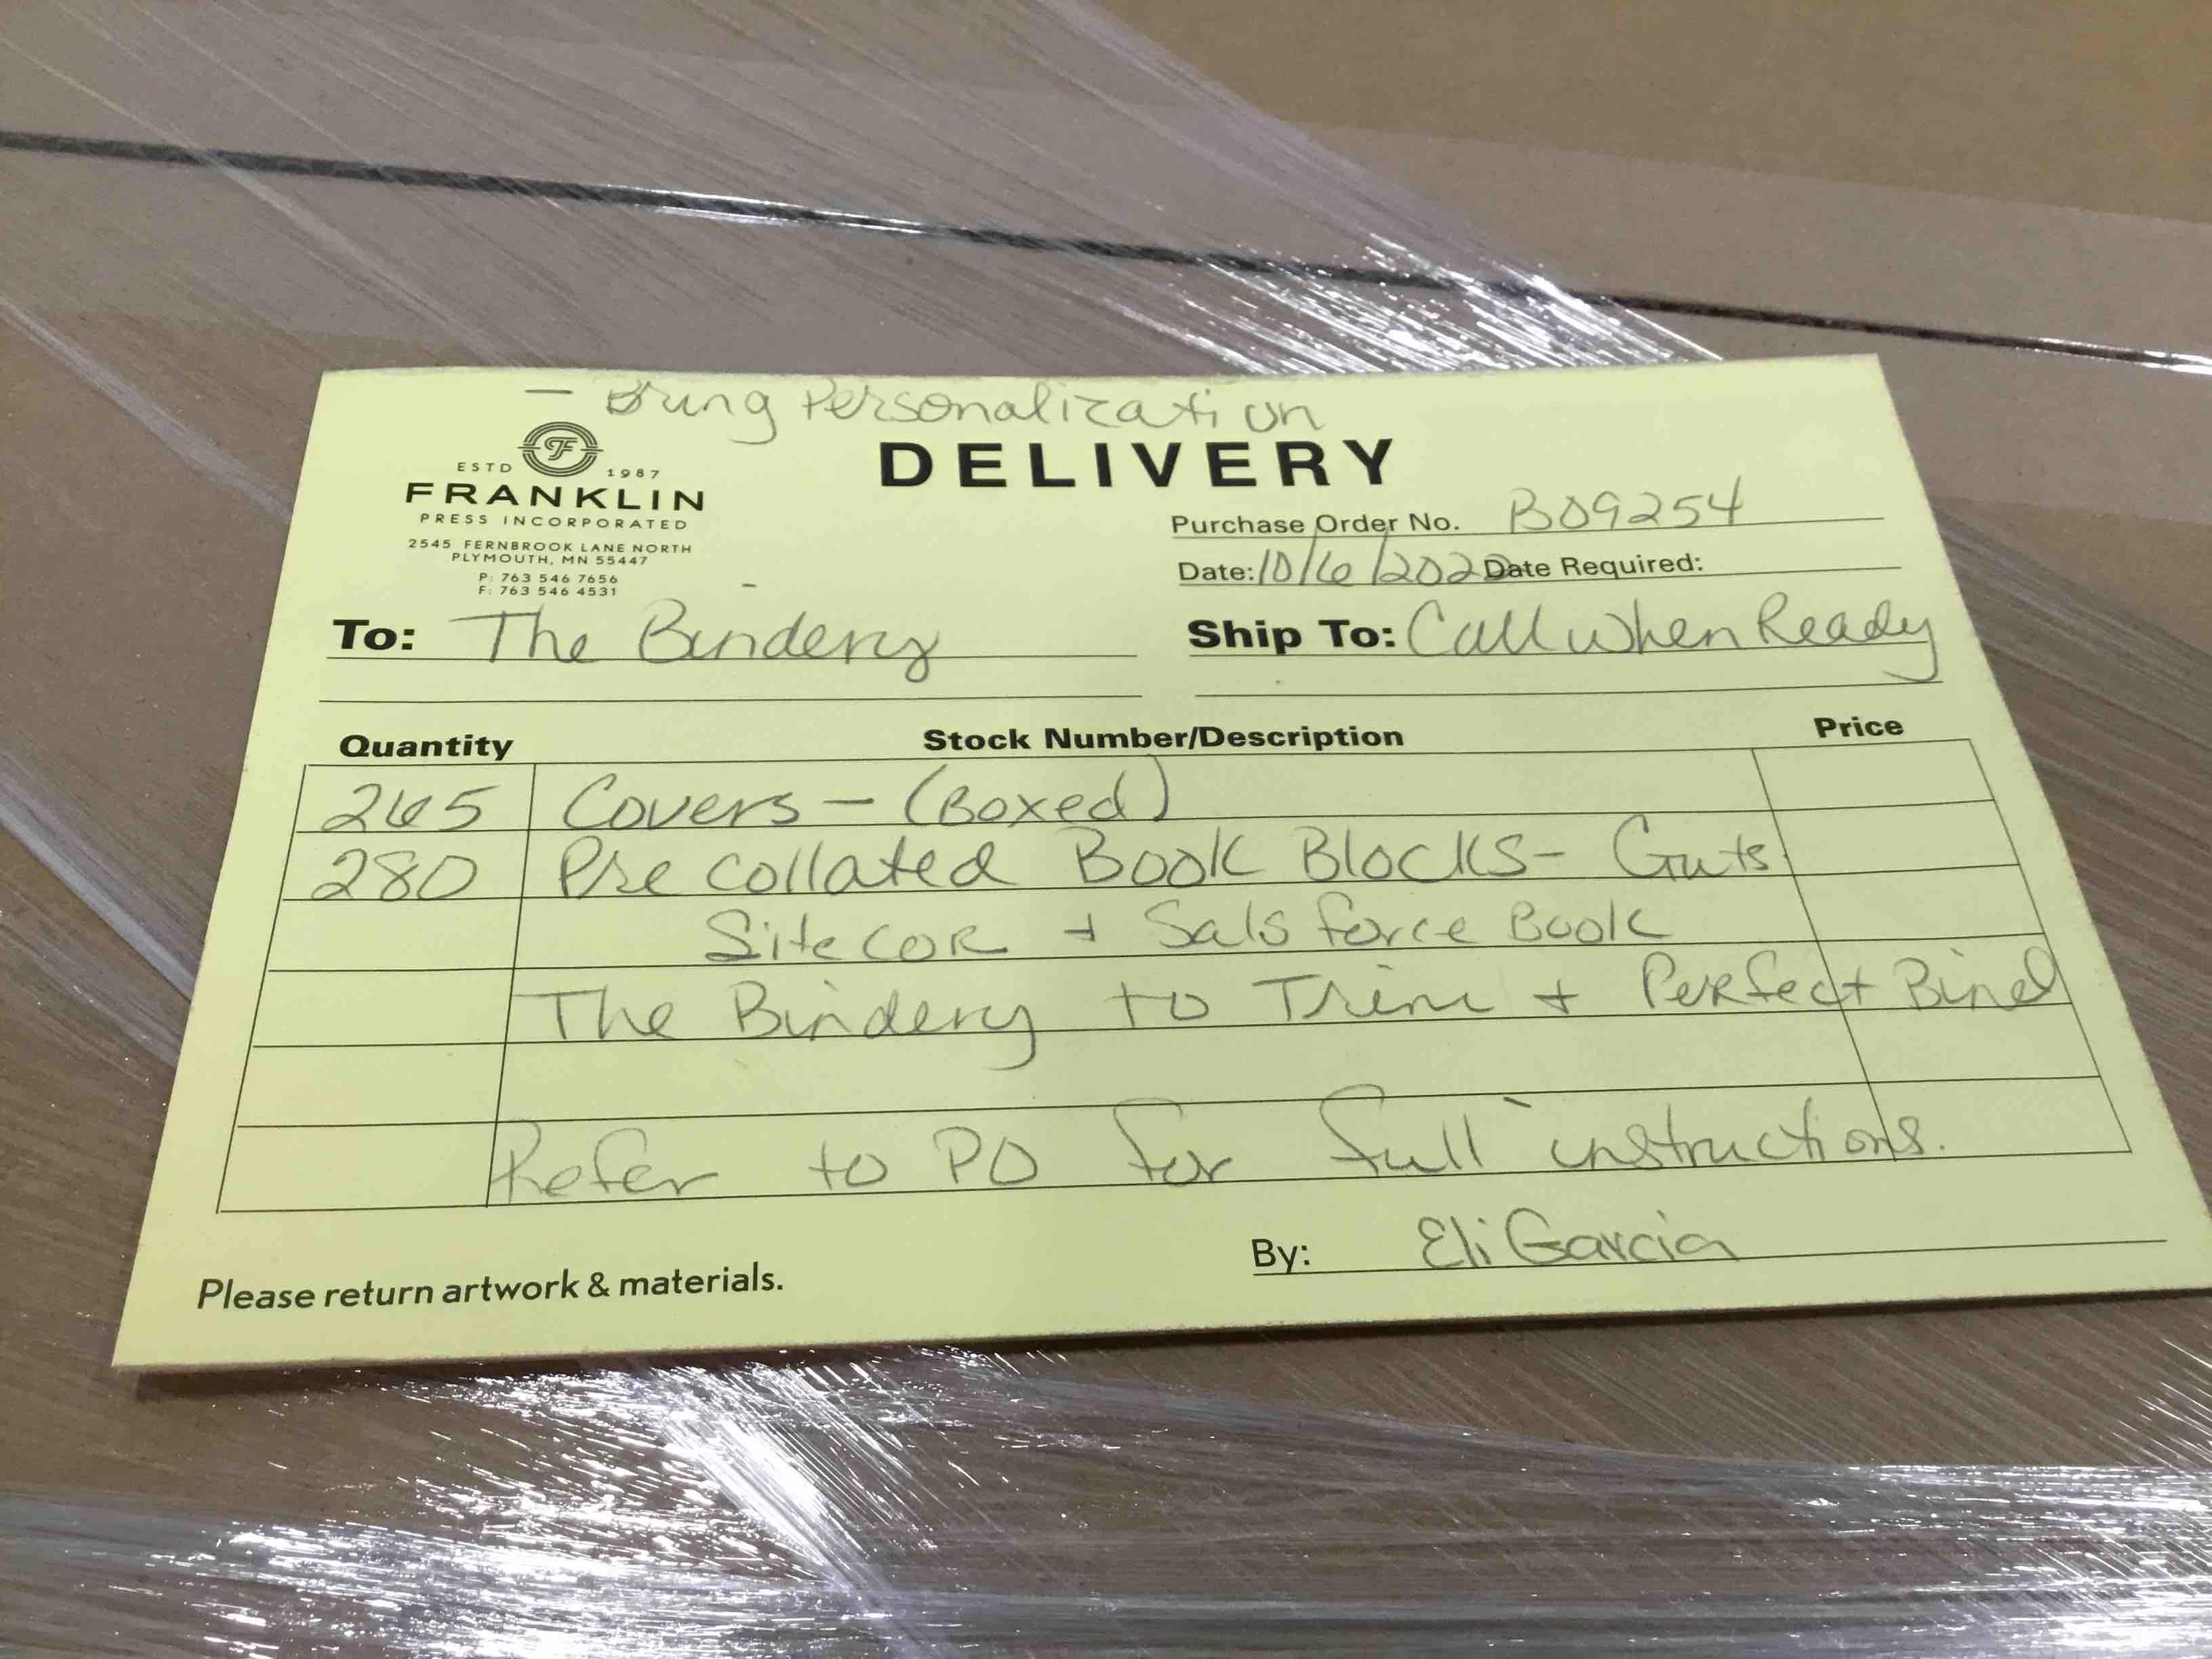 - Bring Personalization
DELIVERY
ESTD 1987
FRANKLIN
PRESS INCORPORATED
2545 FERNBROOK LANE NORTH
PLYMOUTH, MN 55447
P: 763 546 7656
F: 763 546 4531
Purchase Order No. B09254
Date: 10/6/2020 Date Required:
To: The Bindery
Ship To: Call When Ready
Quantity Stock Number/Description Price
265 Covers - (Boxed)
280 Pre collated Book Blocks - Guts
SiteCOR + Salsforce Book
The Bindery to Trim + Perfect Bind
Refer to PO for full instructions.
By: Eli Garcia
Please return artwork & materials.